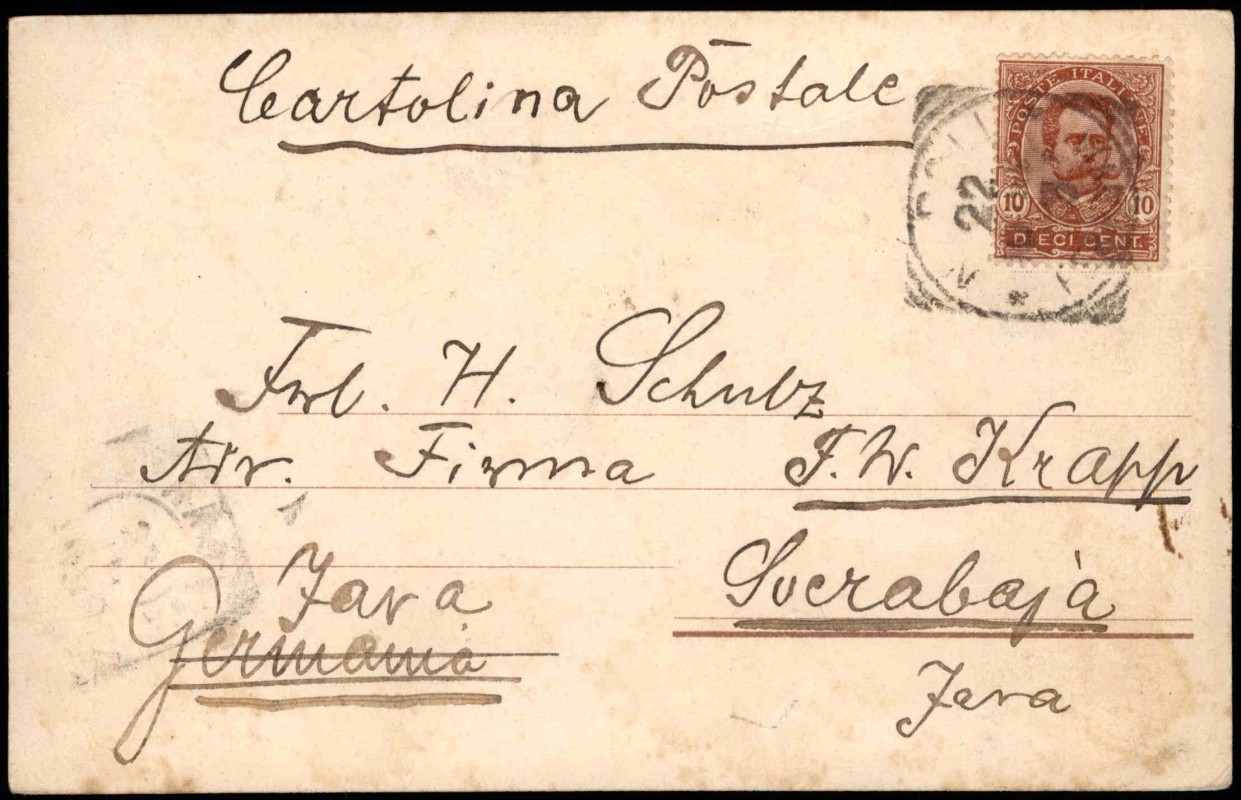 Cartolina Postale
POSTE ITALIANE
10 10
DIECI CENT.
22
Frl. H. Schultz
Adr. Firma F. W. Krapp
Java Soerabaja
Germania
Java